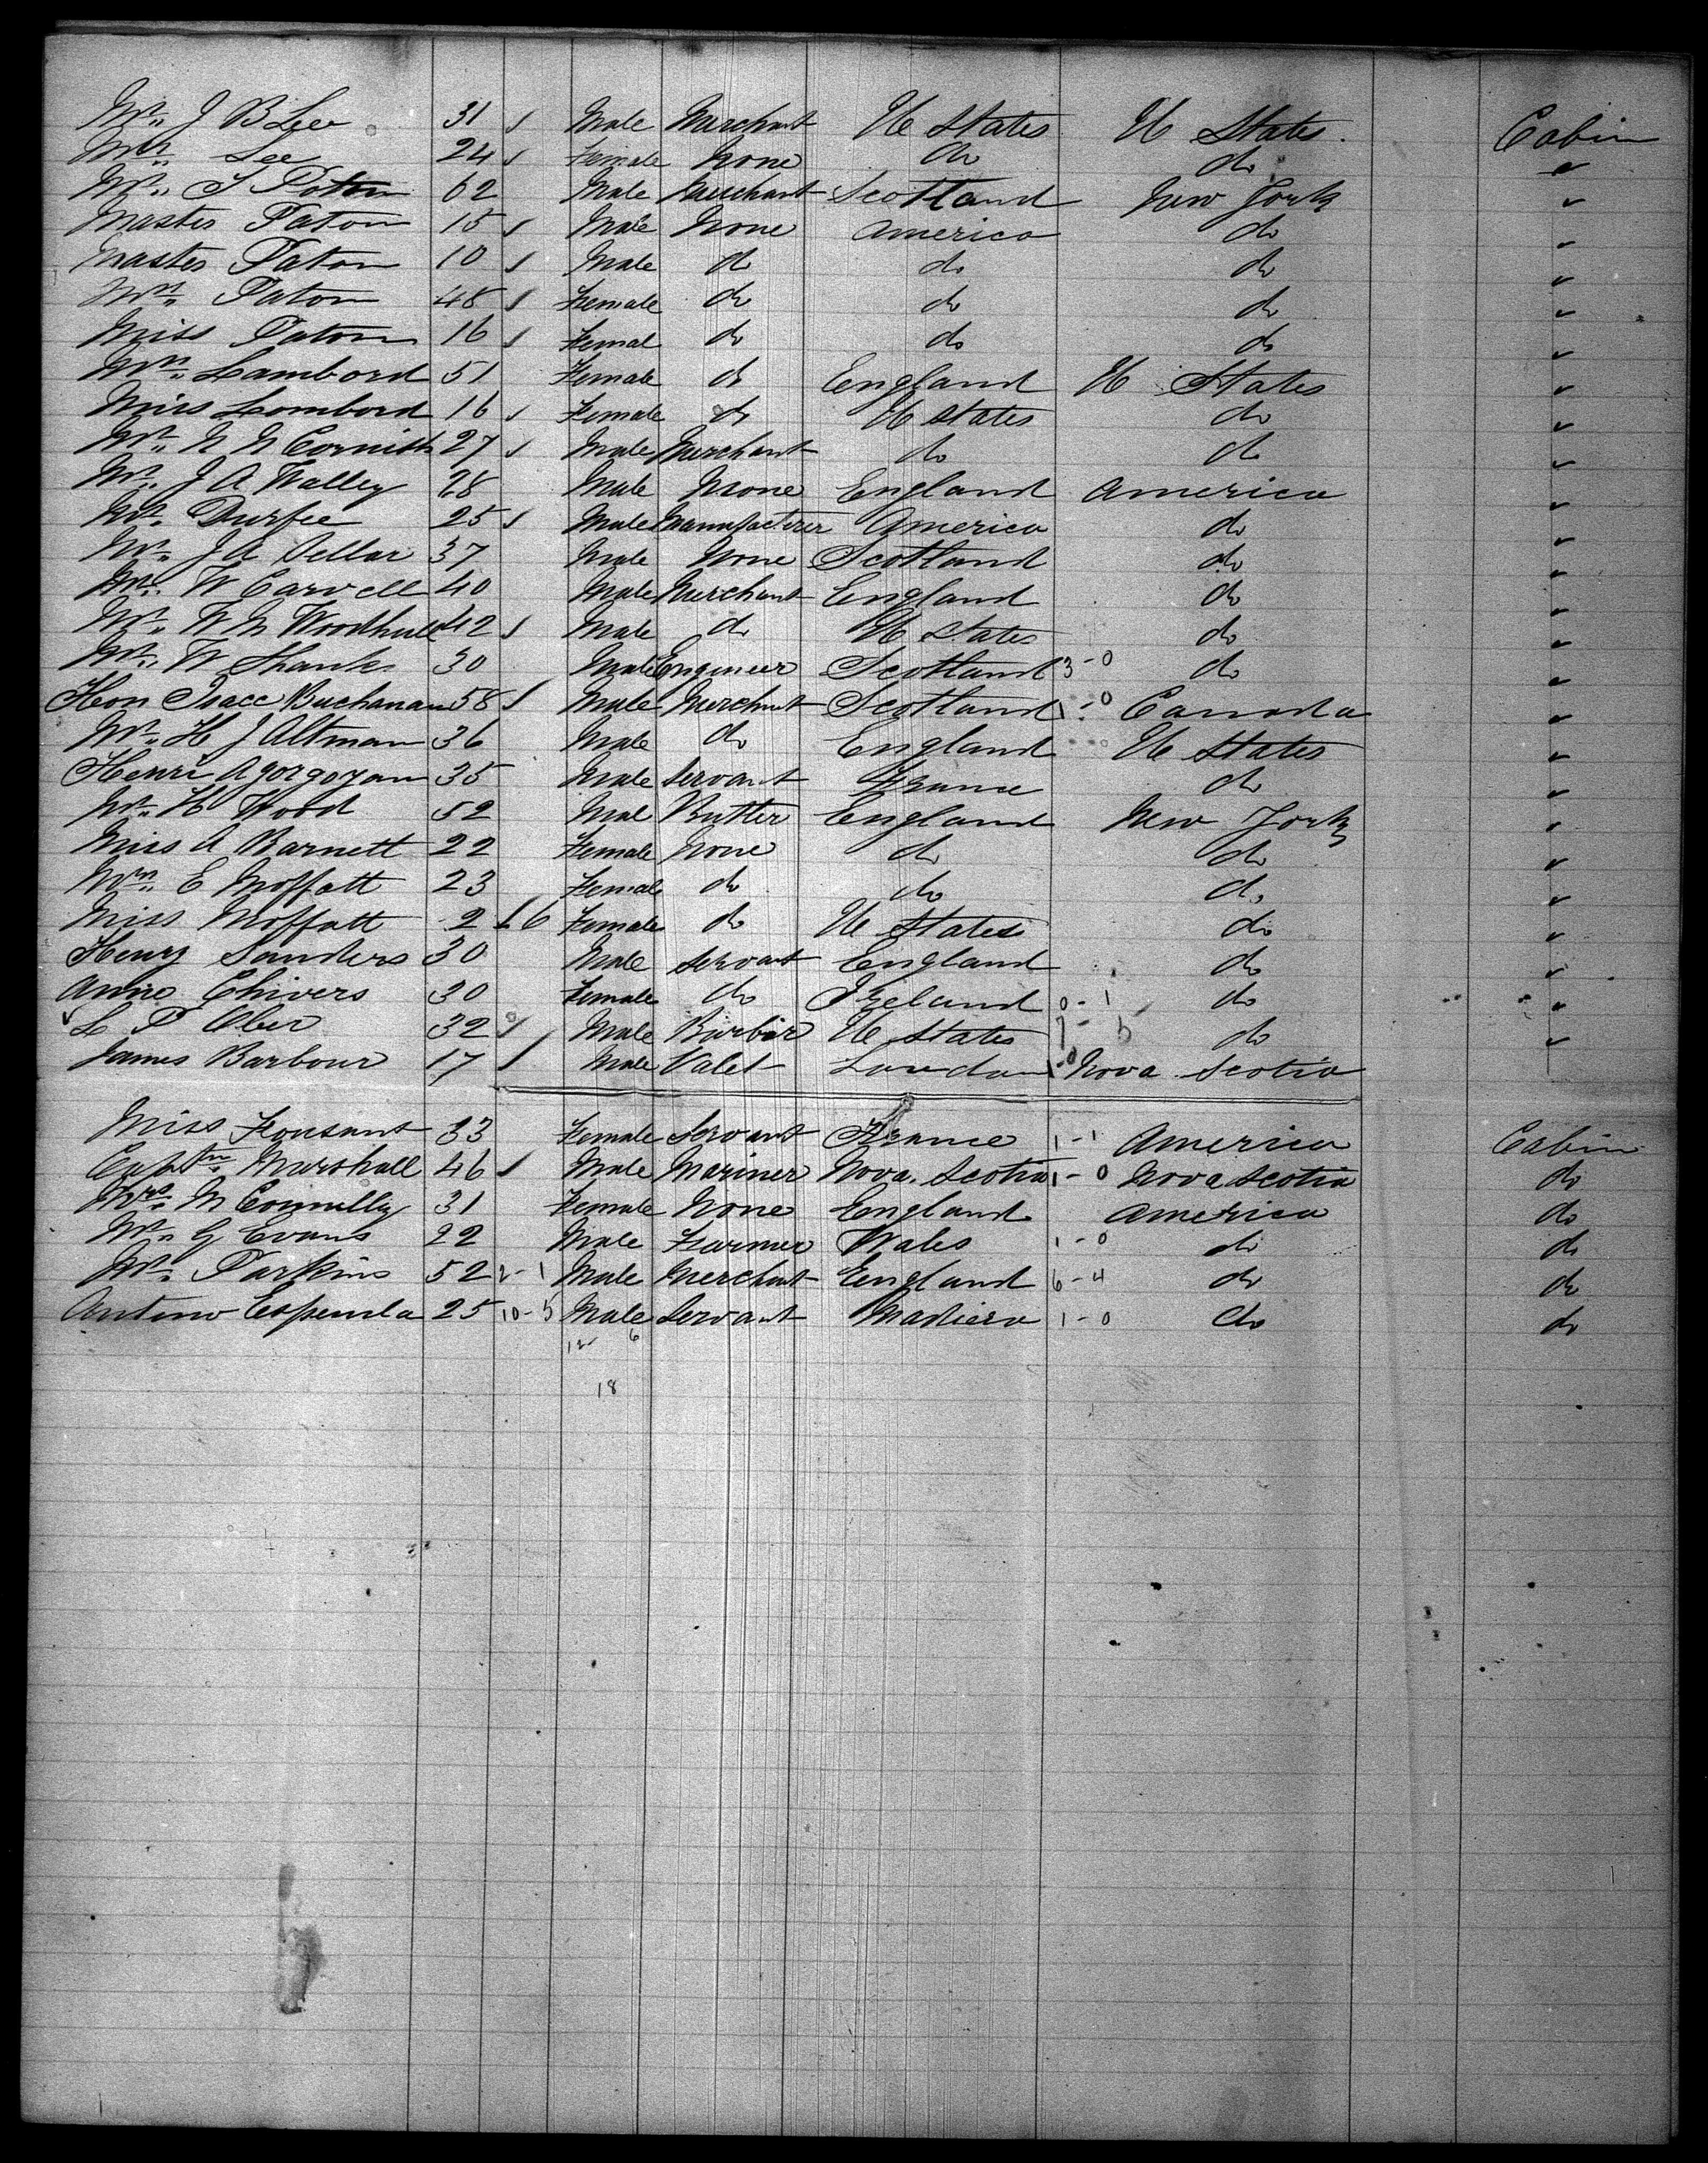 Mr. J B Lee 31 Male Merchant U States U States Cabin
Mrs. Lee 24 Female None do do
Mr. T Paton 62 Male Merchant Scotland New York
Master Paton 15 Male None America do
Master Paton 10 Male do do do
Mrs. Paton 48 Female do do do
Miss Paton 16 Femal do do do
Mrs. Lambord 51 Female do England U States
Miss Lombord 16 Female do U States do
Mr. N N Cornish 27 Male Merchant do do
Mr. J A Walley 28 Male None England America
Mr. Durfee 25 Male Manufacturer America do
Mr. J A Sellar 37 Male None Scotland do
Mr. W Carvell 40 Male Merchant England do
Mr. W N Woodhull 42 Male do U States do
Mr. W Shanks 30 Male Engineer Scotland 3-0 do
Hon Isacc Buchanan 58 Male Merchant Scotland 1-0 Canada
Mr. H J Altman 36 Male do England U States
Henri 35 Male Servant France do
Mr. H Wood 52 Mal Butler England New York
Miss A Barnett 22 Female None do do
Mrs. E Moffatt 23 Female do do do
Miss Moffatt 2 16 Female do U States do
Henry Sanders 30 Male Servant England do
Anne Chivers 30 Female do Ireland 0-1 do
L P Ober 32 Male Barbir U States 7-5 do
James Barbour 17 Male Valet London 1-0 Nova Scotia
Miss Fousant 33 Female Servant France 1-1 America Cabin
Captn. Marshall 46 Male Mariner Nova Scotia 1-0 Nova Scotia do
Mrs. M Connelly 31 Female None England America do
Mr. G Evans 22 Male Farmer Wales 1-0 do do
Mr. Parkins 52 2-1 Male Merchant England 6-4 do do
Antino 25 10-5 Male Servant Madiera 1-0 do do
12 6
18